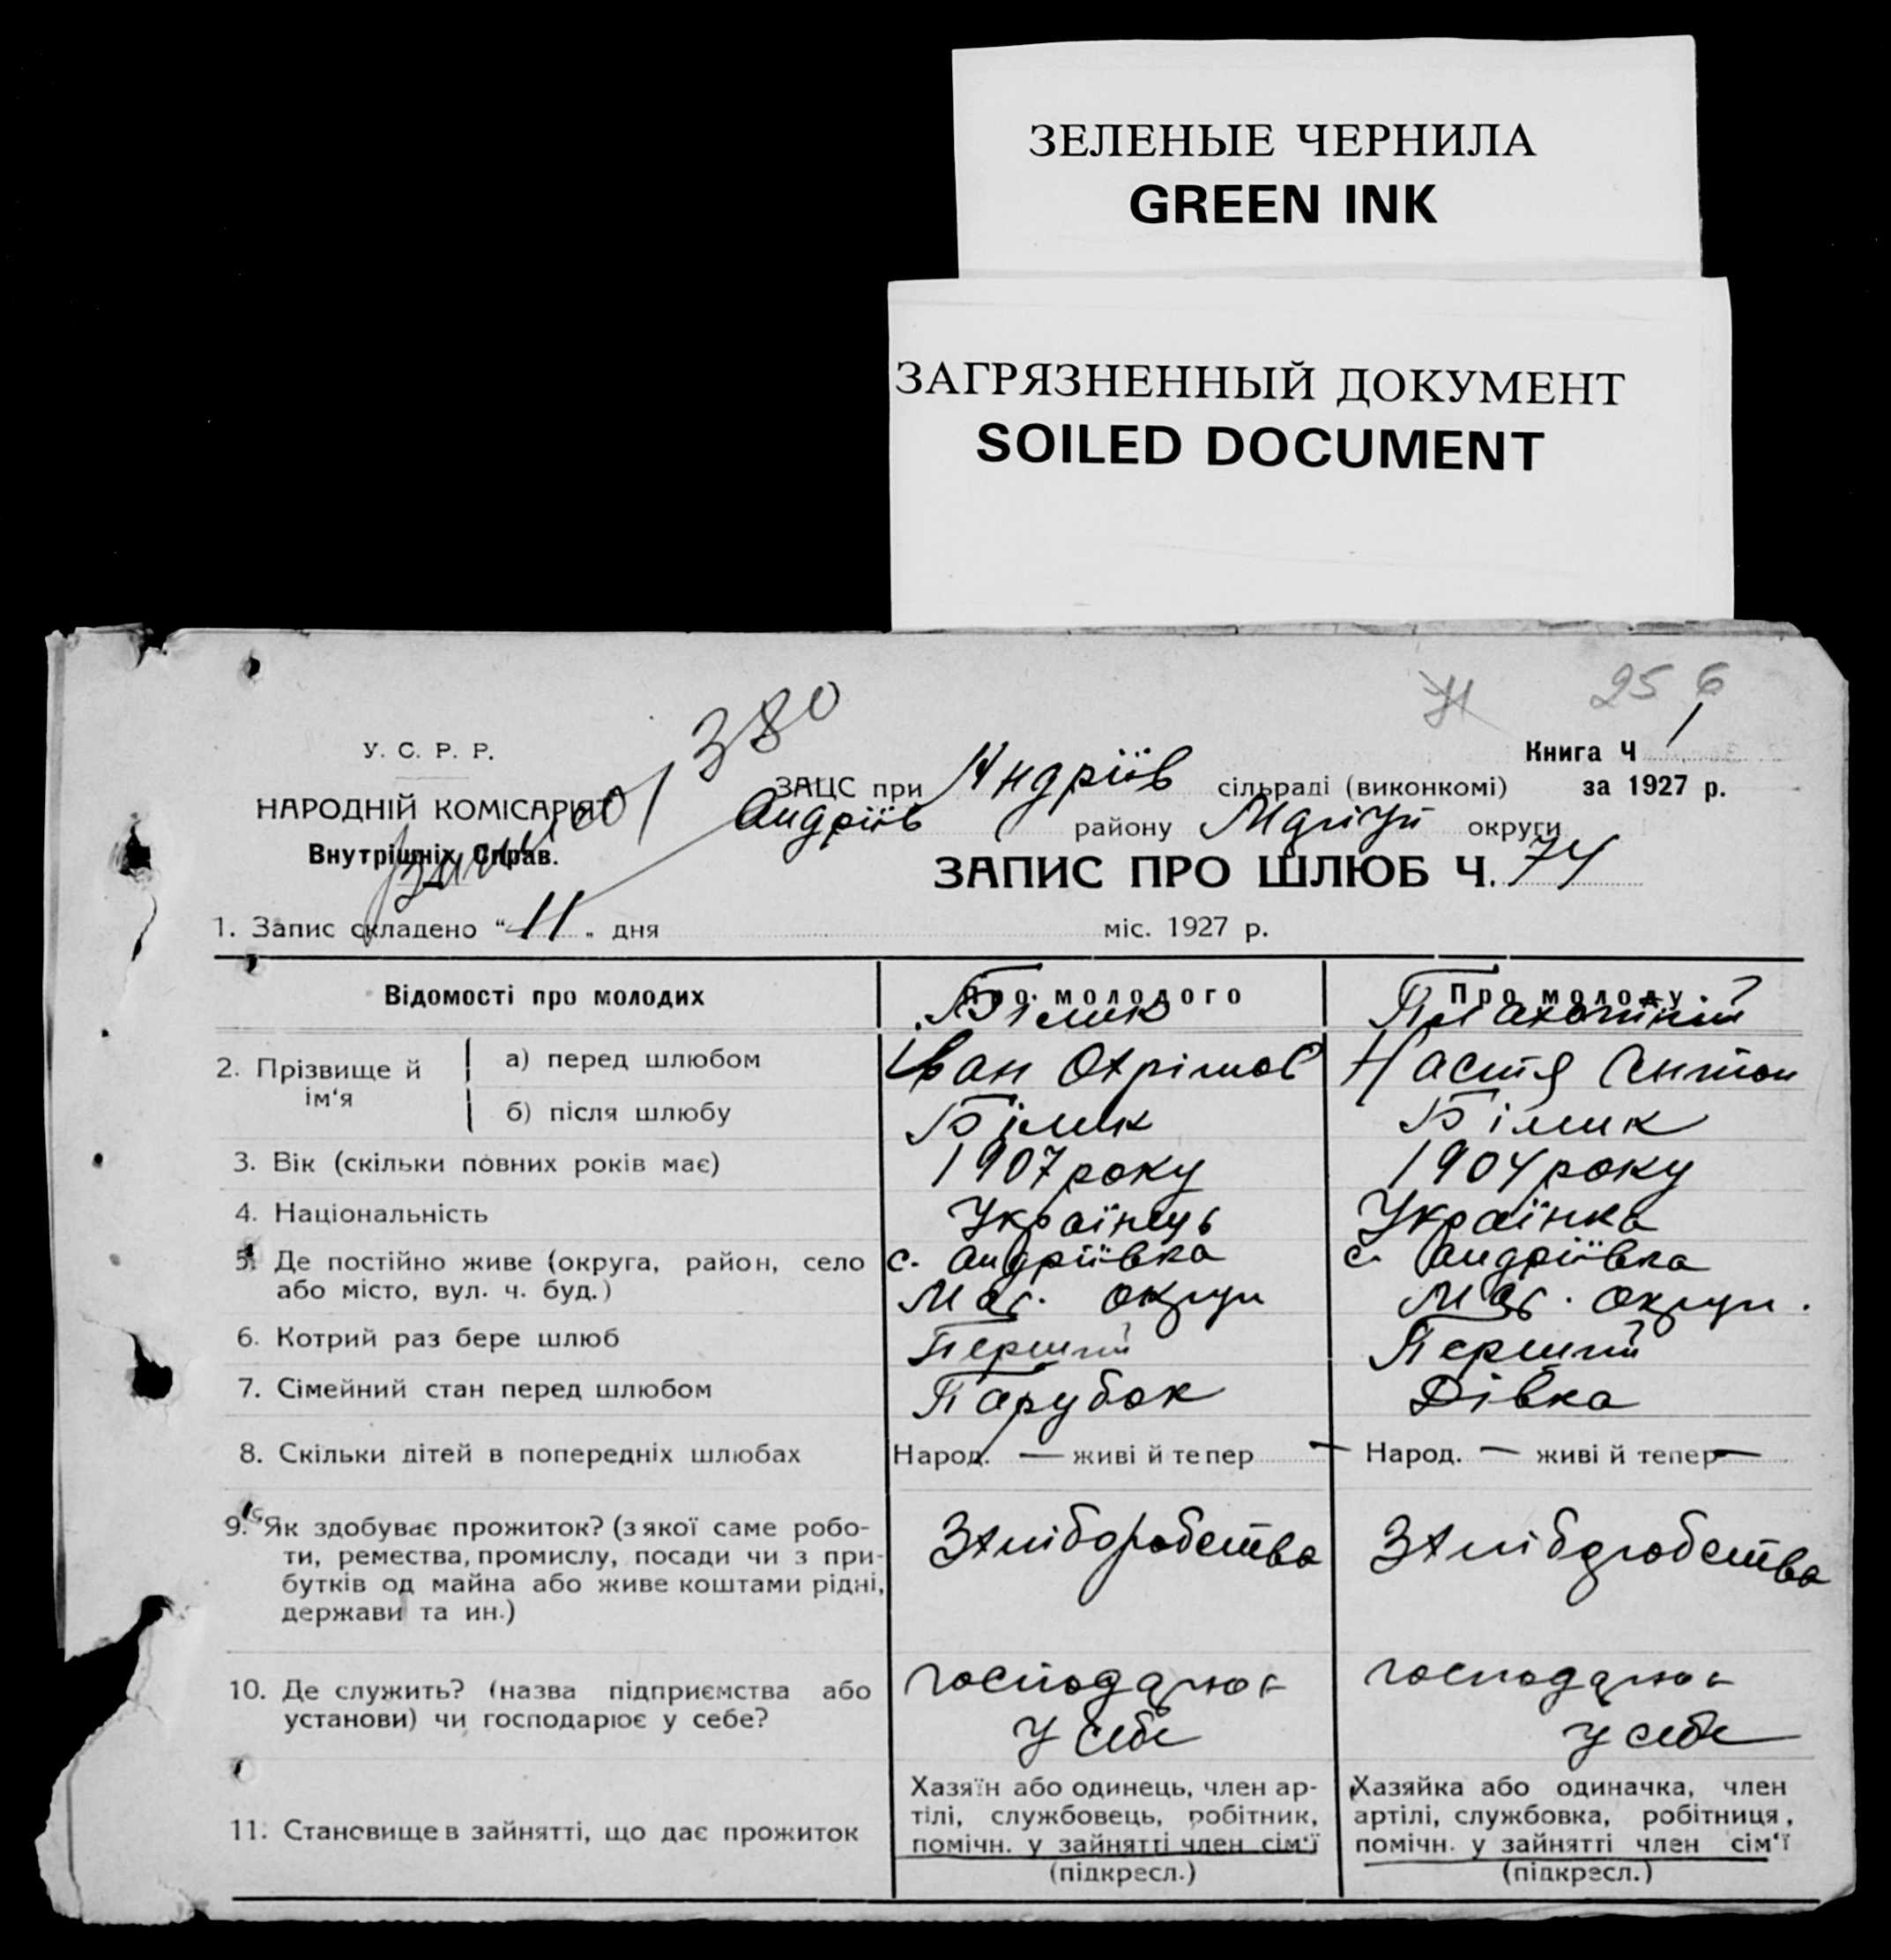 ЗЕЛЕНЫЕ ЧЕРНИЛА
GREEN INK
ЗАГРЯЗНЕННЫЙ ДОКУМЕНТ
SOILED DOCUMENT
25 6
380
У. С. Р. Р.
НАРОДНІЙ КОМІСАРІЯТ
Внутрішніх Справ.
Книга Ч 1
за 1927 р.
ЗАЦС при Андріїв сільраді (виконкомі)
Андріїв району округи
ЗАПИС ПРО ШЛЮБ Ч. 74
1. Запис складено "11" дня міс. 1927 р.
Відомості про молодих
Про молодого
Про молоду
Білик
2. Прізвище й ім'я
а) перед шлюбом
Іван Охрімов
Настя Антон
б) після шлюбу
Білик
Білик
3. Вік (скільки повних років має)
1907 року
1904 року
4. Національність
Українець
Українка
5. Де постійно живе (округа, район, село
або місто, вул. ч. буд.)
с. Андріївка
Мар. округи
с. Андріївка
Мар. округи.
6. Котрий раз бере шлюб
Перший
Перший
7. Сімейний стан перед шлюбом
Парубок
Дівка
8. Скільки дітей в попередніх шлюбах
Народ. — живі й тепер —
Народ. — живі й тепер —
9. Як здобуває прожиток? (з якої саме робо-
ти, ремества, промислу, посади чи з при-
бутків од майна або живе коштами рідні,
держави та ин.)
З хліборобства
З хліборобства
10. Де служить? (назва підприємства або
установи) чи господарює у себе?
господарює
у себе
господарює
у себе
11. Становище в зайнятті, що дає прожиток
Хазяїн або одинець, член ар-
тілі, службовець, робітник,
помічн. у зайнятті член сім'ї
(підкресл.)
Хазяйка або одиначка, член
артілі, службовка, робітниця,
помічн. у зайнятті член сім'ї
(підкресл.)